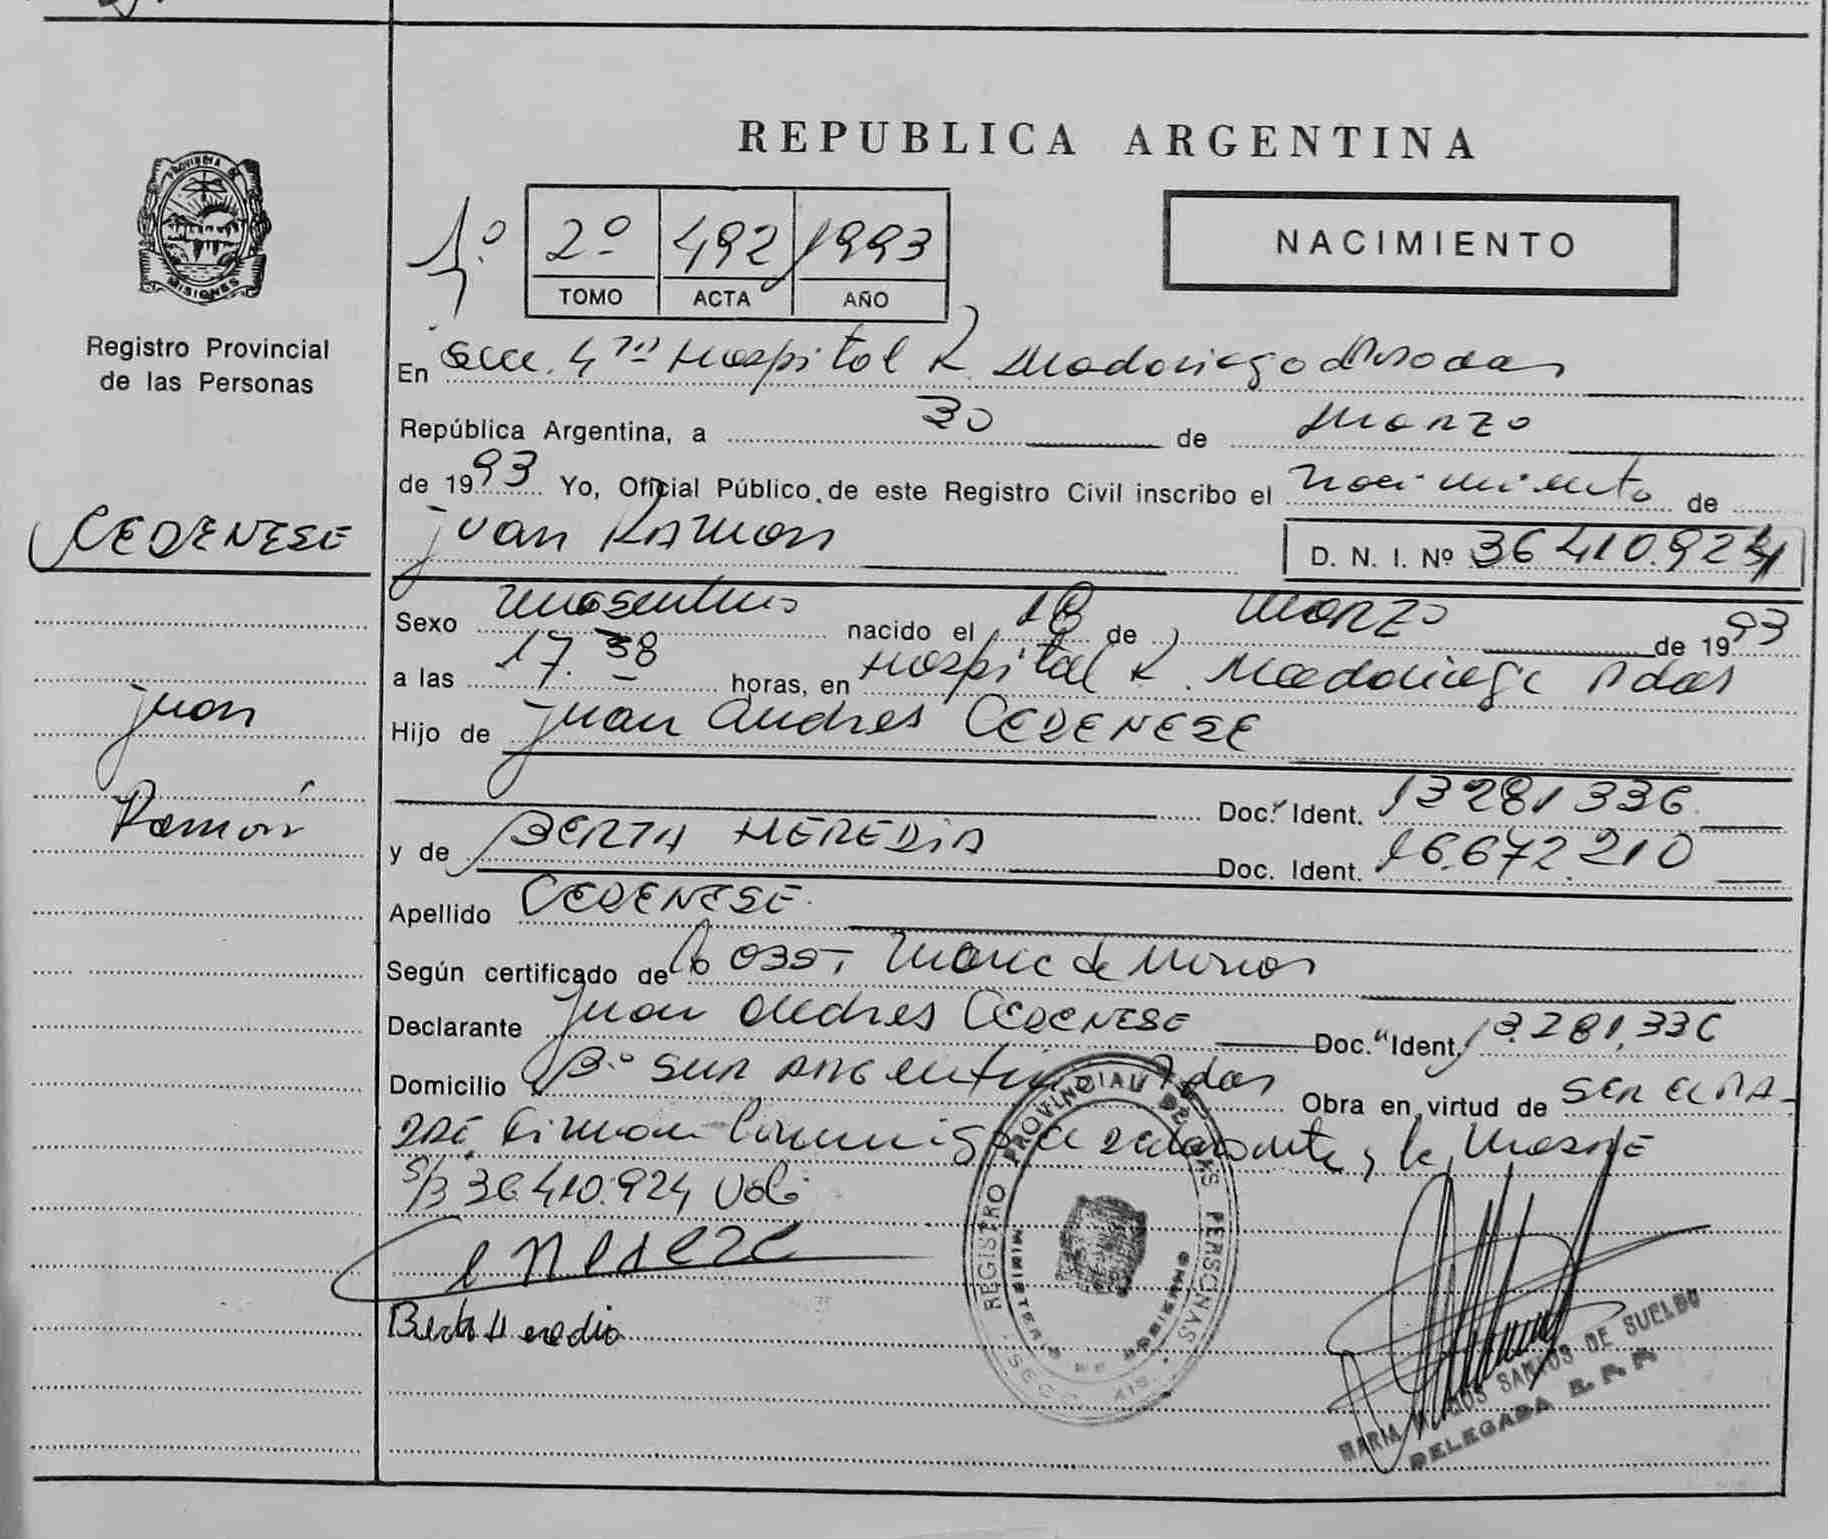 REPUBLICA ARGENTINA
PROVINCIA DE
MISIONES
Registro Provincial
de las Personas
1º
2º 492 1993
TOMO ACTA AÑO
NACIMIENTO
En Secc. 4ta Hospital R. Madariaga Posadas
República Argentina, a 30 de Marzo
de 1993 Yo, Oficial Público de este Registro Civil inscribo el nacimiento de
CEDENESE
Juan Ramon D. N. I. Nº 36.410.924
Sexo masculino nacido el 18 de Marzo de 1993
a las 17.38 horas, en Hospital R. Madariaga Pdas
Juan
Hijo de Juan Andres CEDENESE
Doc. Ident. 13281336
Ramón
y de BERTA HEREDIA Doc. Ident. 16.672.210
Apellido CEDENESE
Según certificado de
Declarante Juan Andres CEDENESE Doc. Ident. 13.281.336
Domicilio Bº Sur Argentino Pdas Obra en virtud de SER EL PA-
DRE Firman Conmigo el declarante y la Madre
S/B 36.410.924 Vale
Berta Heredia
REGISTRO PROVINCIAL DE LAS PERSONAS
MINISTERIO DE GOBIERNO
MARIA SANTOS DE SUELDO
DELEGADA R. P. P.